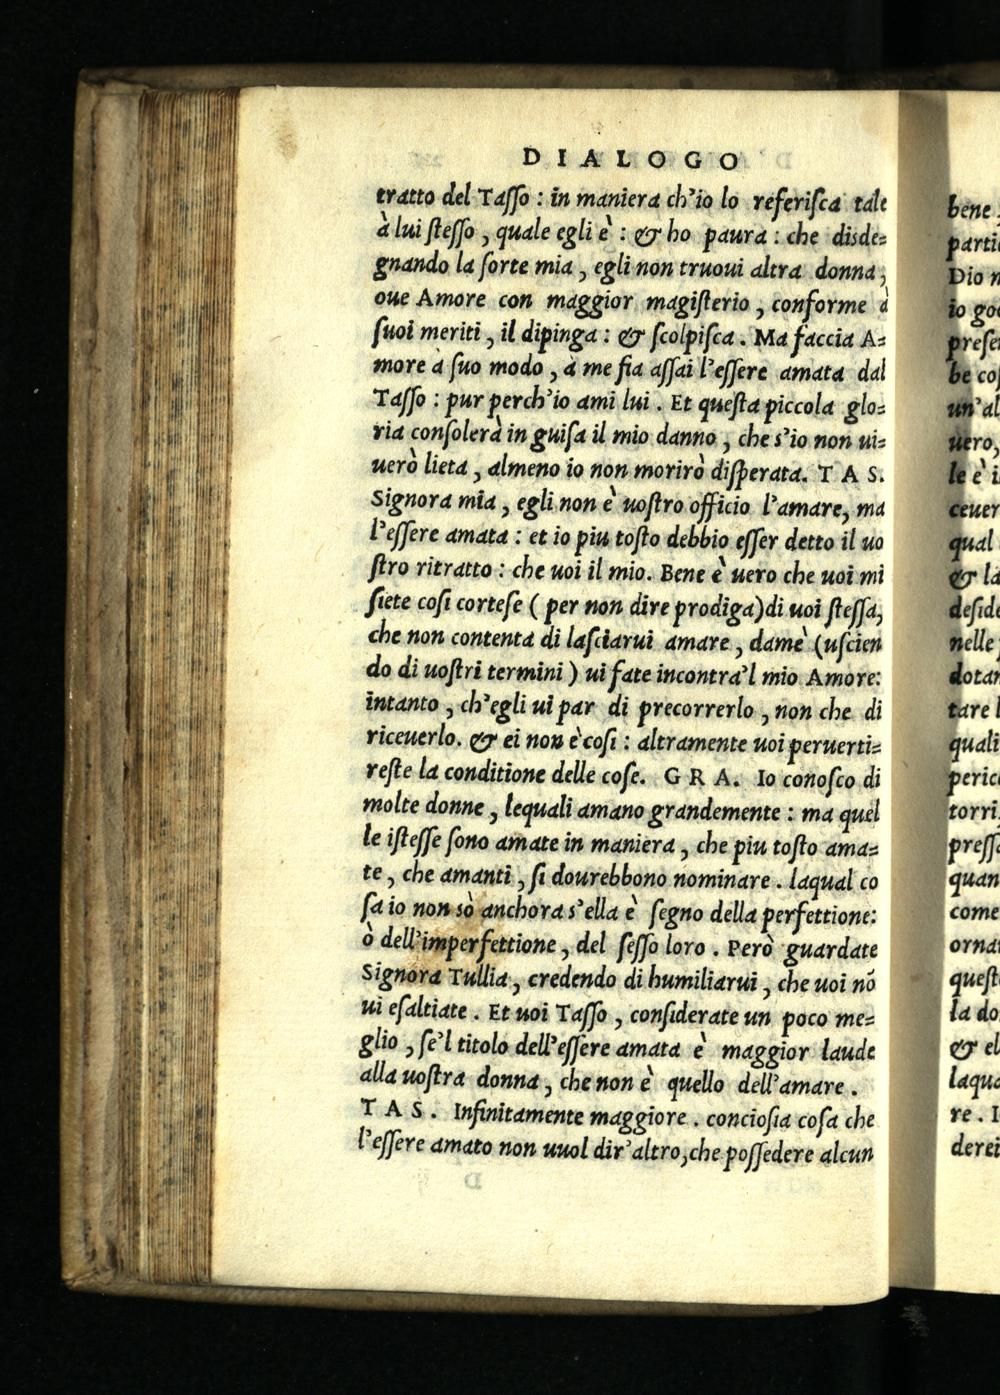 DIALOGO
tratto del Tasſo : in maniera ch'io lo referiſca tale
à lui ſteſſo , quale egli è : & ho paura : che disde=
gnando la ſorte mia , egli non truoui altra donna ,
oue Amore con maggior magiſterio , conforme à
ſuoi meriti , il dipinga : & ſcolpiſca . Ma faccia A=
more à ſuo modo , à me fia aſſai l'eſſere amata dal
Taſſo : pur perch'io ami lui . Et queſta piccola glo=
ria conſolerà in guiſa il mio danno , che s'io non ui=
uerò lieta , almeno io non morirò diſperata. T A S.
Signora mia , egli non è uoſtro officio l'amare, ma
l'eſſere amata : et io piu toſto debbio eſſer detto il uo
ſtro ritratto : che uoi il mio. Bene è uero che uoi mi
ſiete coſi corteſe ( per non dire prodiga)di uoi ſteſſa,
che non contenta di laſciarui amare , damè (uſcien
do di uoſtri termini ) ui fate incontra'l mio Amore:
intanto , ch'egli ui par di precorrerlo , non che di
riceuerlo. & ei non è coſi : altramente uoi peruerti=
reſte la conditione delle coſe. G R A. Io conoſco di
molte donne , lequali amano grandemente : ma quel
le iſteſſe ſono amate in maniera , che piu toſto ama=
te , che amanti , ſi dourebbono nominare . laqual co
ſa io non sò anchora s'ella è ſegno della perfettione:
ò dell'imperfettione , del ſeſſo loro . Però guardate
Signora Tullia , credendo di humiliarui , che uoi nō
ui eſaltiate . Et uoi Taſſo , conſiderate un poco me=
glio , ſe'l titolo dell'eſſere amata è maggior laude
alla uoſtra donna , che non è quello dell'amare .
T A S. Infinitamente maggiore . conciosia coſa che
l'eſſere amato non uuol dir'altro,che poſſedere alcun
bene
partic
Dio n
io go
preſe
be coſ
un'al
uero,
le è i
ceuer
qual
& la
deſide
nelle
dotar
tare l
quali
peric
torri
preſſ
quan
come
ornat
queſt
la do
& el
laqua
re . I
derei